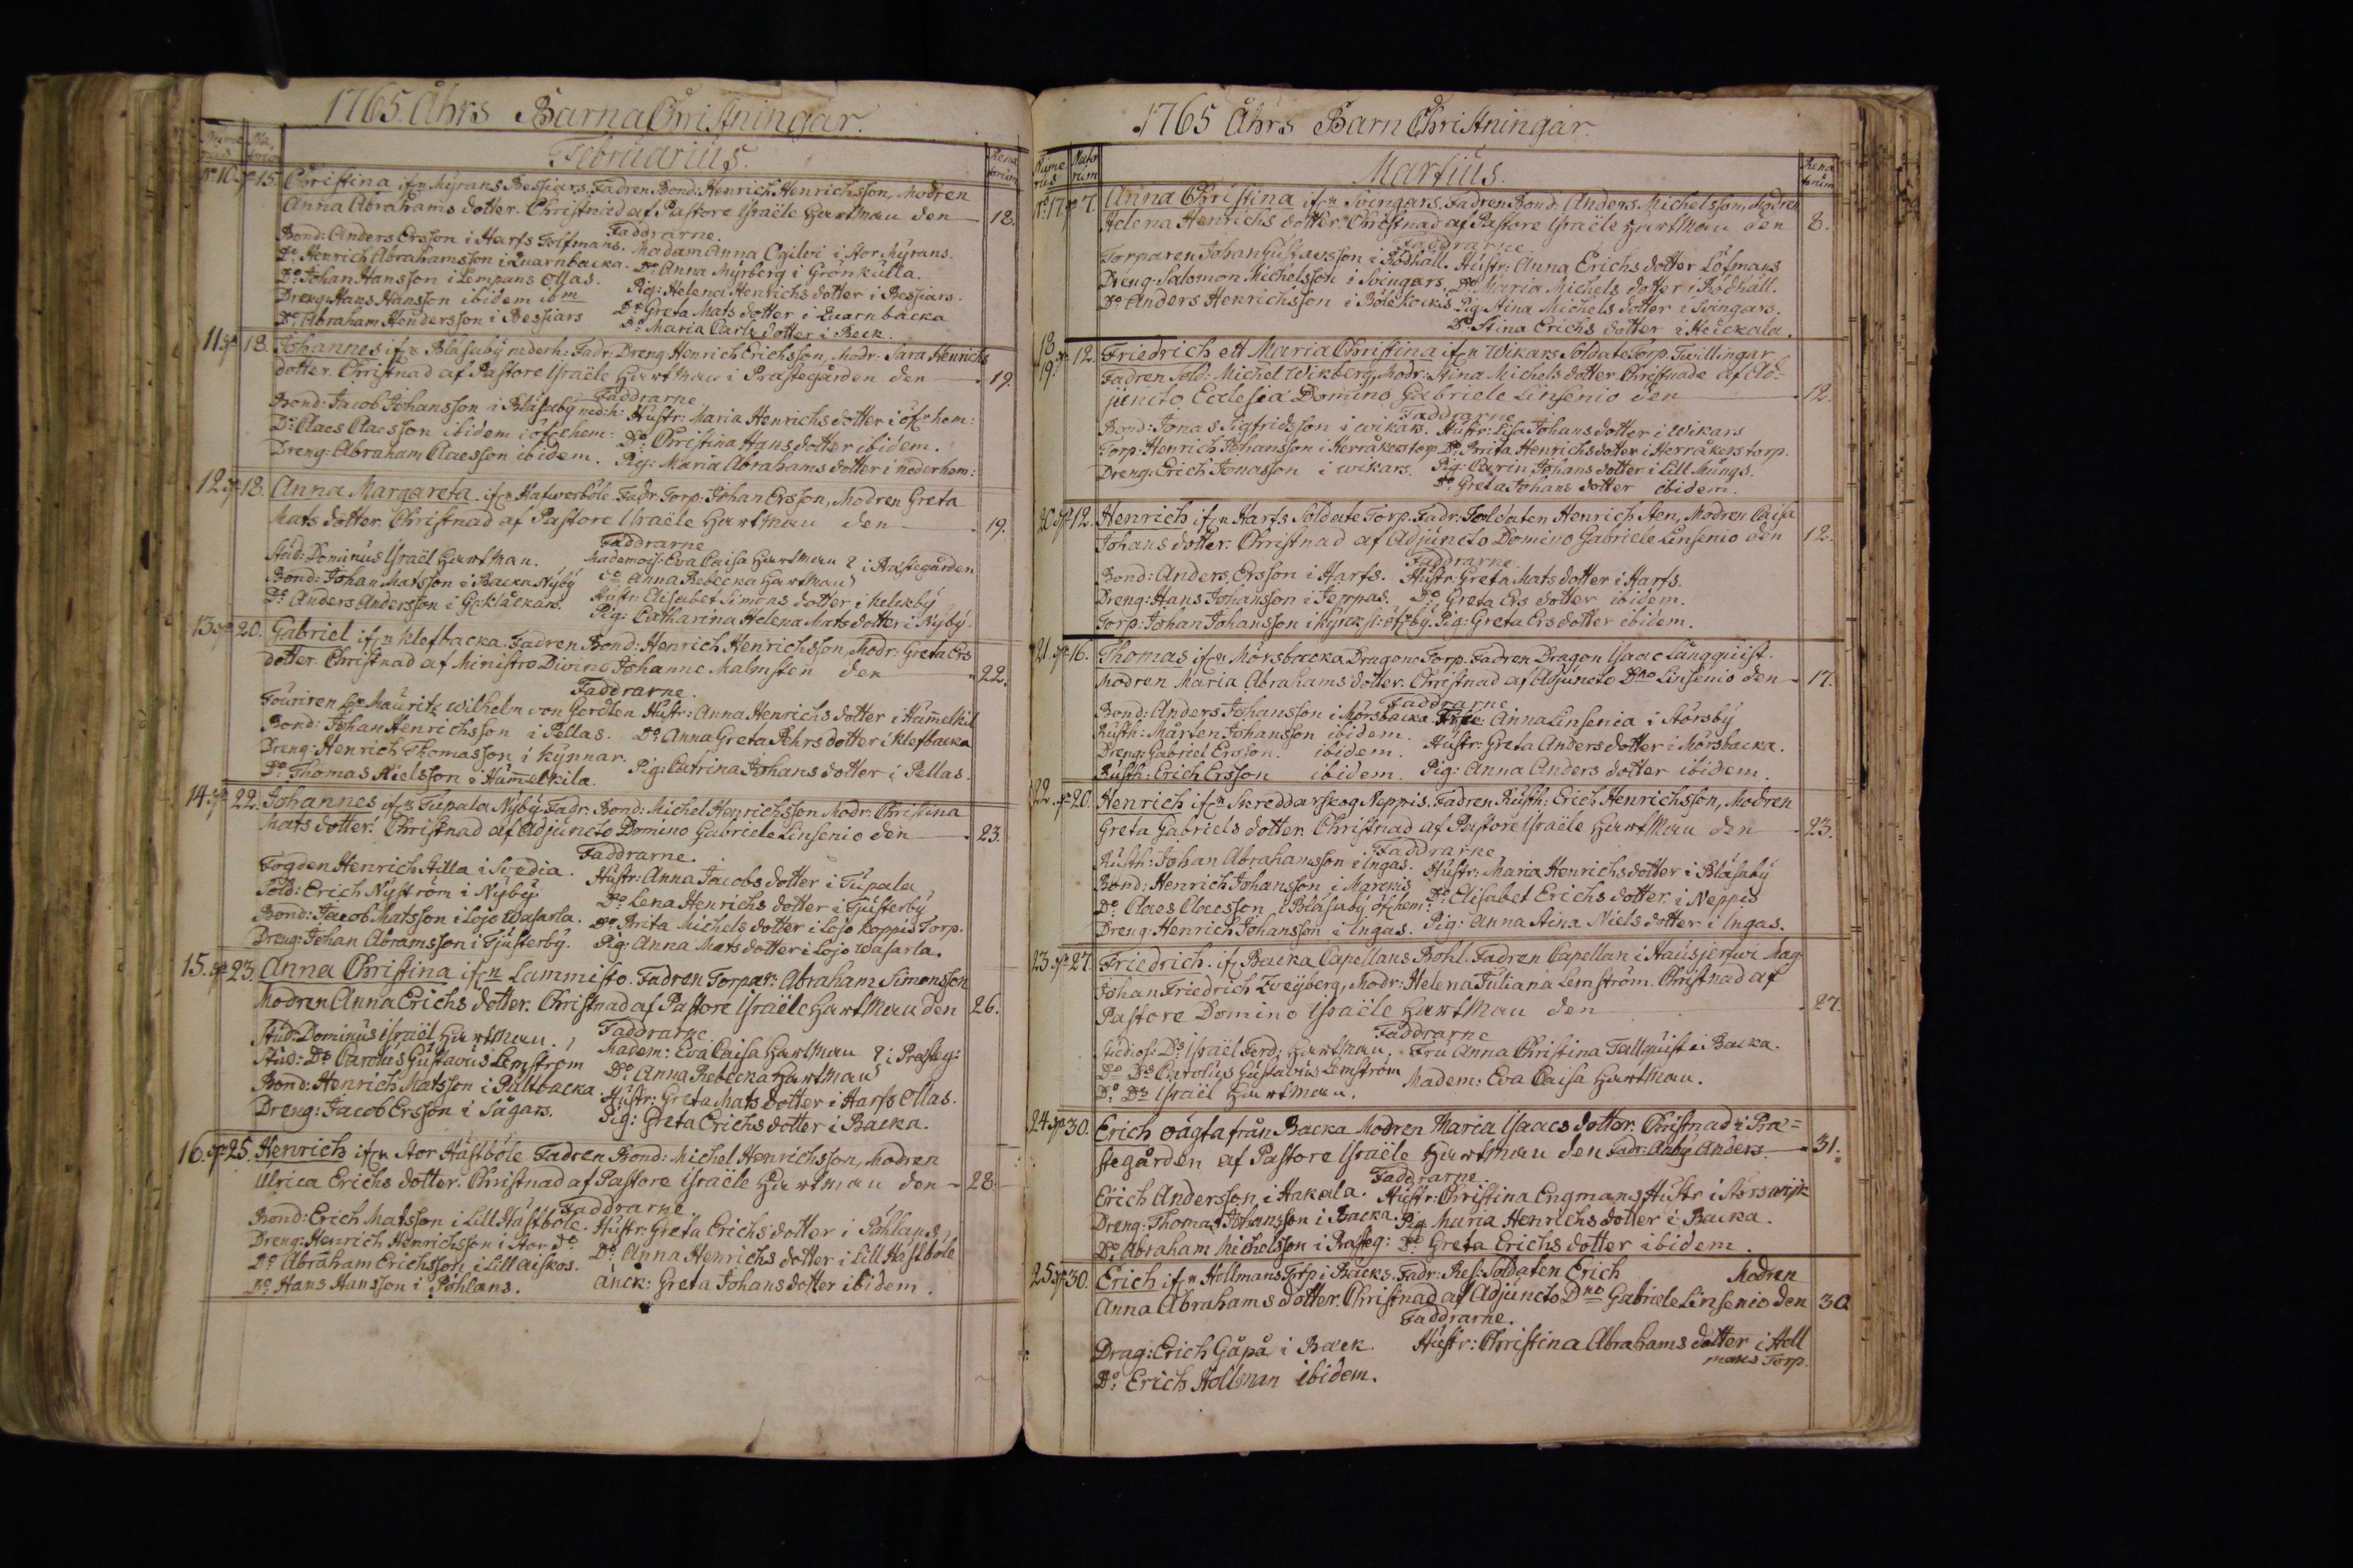 1765 Åhrs Barna Christningar.
Februarius.
Nume rus
Renatorum
No 10. 15. Christina ifrn Myrans Bessiars. Fadren Bond: Henrich Henrichsson, Modren
Anna Abrahams dotter. Christnad af Pastore Israële Hartman den 18.
Faddrarne.
Bond: Anders Ersson i Harfs Tolfmans. Madam Anna Ogilvi i Stor Myrans.
Do Henrich Abrahamsson i Quarnbacka. Do Anna Myrberg i Grönkulla.
Do Johan Hansson i Lempans Ollas. Pig: Helena Henrichs dotter i Bessiars.
Dreng: Hans Hansson ibidem Do Greta Mats dotter i Quarnbacka
Do Abraham Hendersson i Bessiars Do Maria Carls dotter i Beck.
11. 18. Johannes ifrn Blasaby nederh: Fadr: Dreng Henrich Erichsson, Modr: Sara Henrichs
dotter. Christnad af Pastore Israële Hartman i Prästegården den 19.
Faddrarne
Bond: Jacob Johansson i Blåsaby ned:h: Hustr: Maria Henrichs dotter i öfrehem:
Do Claes Claesson ibidem i öfrehem: Do Christina Hans dotter ibidem.
Dreng: Abraham Claesson ibidem. Pig: Maria Abrahams dotter i nederhem:
12. 18. Anna Margareta ifrn Hatwerböle Fadr. Torp: Johan Ersson, Modren Greta
Mats dotter. Christnad af Pastore Israële Hartman den 19.
Faddrarne
Stud: Dominus Israël Hartman. Mademois: Eva Caisa Hartman i Prästegården
Bond: Johan Matsson i Backa Nyby Do Anna Rebecka Hartman
Do Anders Andersson i Hustr: Elisabet Simons dotter i Kelckby
Pig: Catharina Helena Mats dotter i Nyby.
13. 20. Gabriel ifrn Klefbacka. Fadren Bond: Henrich Henrichsson, Modr: Greta Ers
dotter. Christnad af Ministro Divino Johanne Malmsten den 22.
Faddrarne.
Fouriren Mauritz Wilhelm von Gerdten Hustr: Anna Henrichs dotter i Hummelkil
Bond: Johan Henrichsson i Pellas. Do Anna Greta Pehrs dotter i Klefbacka
Dreng: Henrich Thomasson i Kynnar. Pig: Catrina Johans dotter i Pellas.
Do Thomas Nielsson i Hummelkila.
14. 22. Johannes ifrn Tupala Nyby. Fadr: Bond: Michel Henrichsson Modr: Christina
Mats dotter. Christnad af Adjuncto Domino Gabriele Linsenio den 23.
Faddrarne.
Fogden Henrich Stilla i Svedia. Hustr: Anna Jacobs dotter i Tupala
Sold: Erich Nyström i Nyby Do Lena Henrichs dotter i Tjusterby
Bond: Jacob Matsson i Lojo Wasarla. Do Brita Michels dotter i Lojo Koppis Torp.
Dreng: Johan Abramsson i Tjusterby. Pig: Anna Mats dotter i Lojo Wasarla.
15. 23. Anna Christina ifrn Lammisto. Fadren Torpar: Abraham Simonsson
Modren Anna Erichs dotter. Christnad af Pastore Israële Hartman den 26.
Faddrarne
Stud: Dominus Israël Hartman. Madem: Eva Caisa Hartman i Presteg:
Stud: Do Carolus Gustavus Lemström Do Anna Rebecka Hartman
Bond: Henrich Matsson i Pullbacka. Hustr: Greta Mats dotter i Harfs Ollas.
Dreng: Jacob Ersson i Sågars. Pig: Greta Erichs dotter i Backa.
16. 25. Henrich ifrn Stor Hästböle Fadren Bond: Michel Henrichsson, Modren
Ulrica Erichs dotter. Christnad af Pastore Israële Hartman den 28.
Faddrarne
Bond: Erich Matsson i Lill Hästböle. Hustr: Greta Erichs dotter i Pöhlans
Dreng: Henrich Henrichsson i Stor do Do Anna Henrichs dotter i Lill Hästböle
Do Abraham Erichsson i Lill aiskos. Änck: Greta Johans dotter ibidem.
Do Hans Hansson i Pöhlans.
1765 Åhrs Barn Christningar.
Martius.
Nume rus
Natorum
Renatorum
No 17. 7. Anna Christina ifrn Svingars. Fadren Bond: Anders Michelsson, Modren
Helena Henrichs dotter. Christnad af Pastore Israële Hartman den 8.
Faddrarne
Torparen Johan Gustavsson i Rödhäll. Hustr: Anna Erichs dotter Löfmans
Dreng: Salomon Michelsson i Svingars. Do Maria Michels dotter i Rödhäll.
Do Anders Henrichsson i Böle Kockis Pig Stina Michels dotter i Svingars.
Do Stina Erichs dotter i Heickala.
18. 19. 12. Friedrich ett Maria Christina ifrn Wikars Soldate Torp. Twillingar
Fadren Sold: Michel Wikberg, Modr: Stina Michels dotter. Christnade af Ad-
juncto Ecclesiæ Domino Gabriele Linsenio den 12.
Faddrarne
Bond: Jonas Sigfridsson i Wikars. Hustr: Lisa Johans dotter i Wikars
Torp: Henrich Johansson i Herråkers torp. Do Brita Henrichs dotter i Herråkers torp.
Dreng: Erich Jonasson i Wikars. Pig: Carin Johans dotter i Lill Mungs.
Do Greta Johans dotter ibidem.
20. 12. Henrich ifrn Harfs Soldate Torp. Fadr: Soldaten Henrich Sten, Modren Caisa
Johans dotter. Christnad af Adjuncto Domino Gabriele Linsenio den 12.
Faddrarne.
Bond: Anders Ersson i Harfs. Hustr: Greta Mats dotter i Harfs.
Dreng: Hans Johansson i Jeppas. Do Greta Ers dotter ibidem.
Torp: Johan Johansson i Pig: Greta Ers dotter ibidem.
21. 16. Thomas ifrn Mörsbacka Dragone Torp. Fadren Dragon Isaac Långquist.
Modren Maria Abrahams dotter. Christnad af Adjuncto Dno Linsenio den 17.
Faddrarne
Bond: Anders Johansson i Mörsbacka. Anna Linsenia i Storsby
Rusth: Mårten Johansson ibidem. Hustr: Greta Anders dotter i Mörsbacka.
Dreng: Gabriel Ersson. ibidem.
Rusth: Erich Ersson ibidem. Pig: Anna Anders dotter ibidem.
22. 20. Henrich ifrn Skreddarskog Neppis. Fadren Rusth: Erich Henrichsson, Modren
Greta Gabriels dotter. Christnad af Pastore Israële Hartman den 23.
Faddrarne
Rusth: Johan Abrahamsson i Ingas. Hustr: Maria Henrichs dotter i Blåsaby
Bond: Henrich Johansson i Marckis Do Elisabet Erichs dotter i Neppis
Do Claes Claesson i Blåsaby öfrhem:
Dreng: Henrich Johansson i Ingas. Pig: Anna Stina Niels dotter i Ingas.
23. 27. Friedrich. ifrn Backa Capellans Bohl. Fadren Capellan i Hausjerfwi Mag:
Johan Friedrich Zweyberg, Modr: Helena Juliana Lemström. Christnad af
Pastore Domino Israële Hartman den 27.
Faddrarne
Studios: Ds Israël Ferd: Hartman. Fru Anna Christina Tallquist i Backa.
Do Ds Carolus Gustavus Lemström Madem: Eva Caisa Hartman.
Do Ds Israël Hartman.
24. 30. Erich oägta från Backa Modren Maria Isaacs dotter. Christnad i Præ=
stegården af Pastore Israële Hartman den Fadr: Anders. 31.
Faddrarne
Erich Andersson i Hakala. Hustr: Christina Engmans Hustr i Storswijk
Dreng: Thomas Johansson i Backa. Pig Maria Henrichs dotter i Backa.
Do Abraham Michelsson i Presteg: Do Greta Erichs dotter ibidem.
25. 30. Erich ifrn Hollmans Torp i Backs. Fadr: Res: Soldaten Erich Modren
Anna Abrahams dotter. Christnad af Adjuncto Dno Gabriele Linsenio den 30
Faddrarne.
Drag: Erich Gåpå i Back. Hustr: Christina Abrahams dotter i Holl
mans Torp.
Do Erich Hollman ibidem.